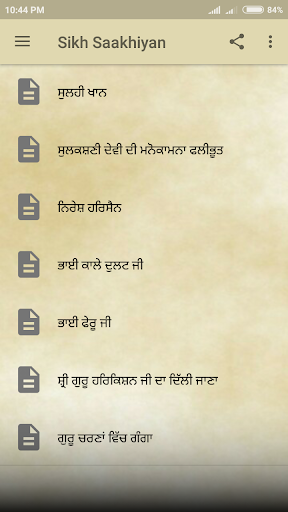 10:44 PM
84%
Sikh Saakhiyan
ਸੁਲਹੀ ਖਾਨ
ਸੁਲਕਸ਼ਣੀ ਦੇਵੀ ਦੀ ਮਨੋਕਾਮਨਾ ਫਲੀਭੂਤ
ਨਿਰੇਸ਼ ਹਰਿਸੈਨ
ਭਾਈ ਕਾਲੇ ਦੁਲਟ ਜੀ
ਭਾਈ ਫੇਰੂ ਜੀ
ਸ਼੍ਰੀ ਗੁਰੂ ਹਰਿਕਿਸ਼ਨ ਜੀ ਦਾ ਦਿੱਲੀ ਜਾਣਾ
ਗੁਰੂ ਚਰਣਾਂ ਵਿੱਚ ਗੰਗਾ